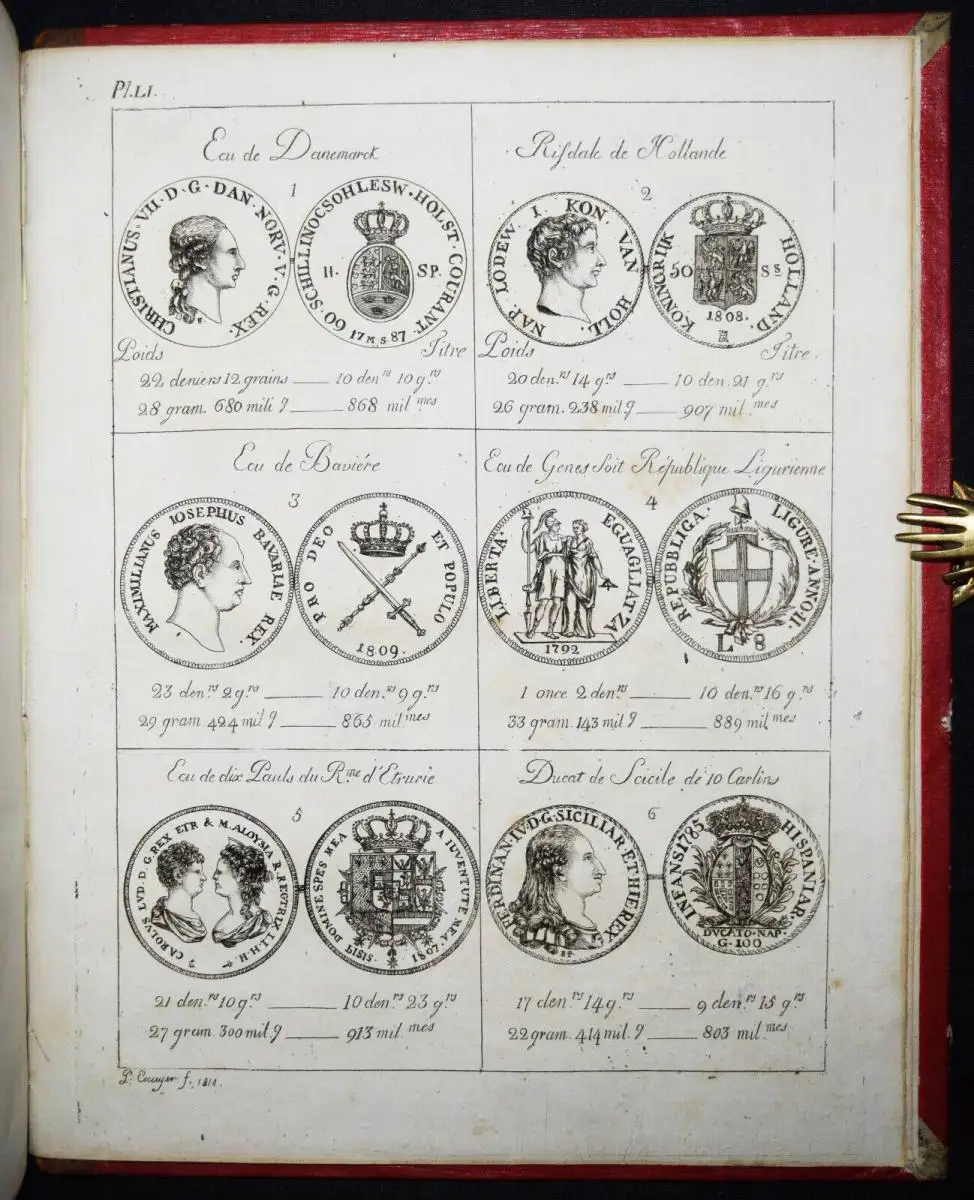 Pl. LI.
Ecu de Danemarck
1
CHRISTIANUS·VII·D·G·DAN·NORV·V·G·REX·
60·SCHILLINOCSOHLESW·HOLST·COURANT·
II· SP.
17 M·S· 87
Poids Titre
22 deniers 12 grains ____ 10 den.rs 10 g.rs
28 gram. 680 mili g ____ 868 mil mes
Risdale de Hollande
2
NAP. LODEW. I. KON. VAN HOLL.
KONINGRIJK HOLLAND.
50 Ss
1808.
Poids Titre.
20 den.rs 14 g.rs ____ 10 den. 21 g.rs
26 gram. 238 mil g ____ 907 mil mes
Ecu de Baviére
3
MAXIMILIANUS IOSEPHUS BAVARIAE REX.
PRO DEO ET POPULO
1809.
23 den.rs 2 g.rs ____ 10 den.rs 9 g.rs
29 gram 424 mil g ____ 865 mil mes
Ecu de Genes soit République Ligurienne
4
LIBERTA· EGUAGLIATZA
1792
REPUBBLICA· LIGURE·ANNO·II·
L 8
1 once 2 den.rs ____ 10 den.rs 16 g.rs
33 gram. 143 mil g ____ 889 mil mes
Ecu de dix Pauls du R.me d'Etrurie
5
CAROLVS LVD·D·G·REX ETR & M·ALOYSIA R·REGTRIX I·I·H·H
DOMINE SPES MEA A IUVENTUTE MEA·1807·
LISIS·
21 den.rs 10 g.rs ____ 10 den.rs 23 g.rs
27 gram. 300 mil. g ____ 913 mil mes
Ducat de Scicile de 10 Carlins
6
FERDINAN·IV·D·G·SICILIAR·ET·HIE·REX
INFANS 1785 HISPANIAR·
DUCATO·NAP·
G·100
17 den.rs 14 g.rs ____ 9 den.rs 15 g.rs
22 gram. 414 mil. g ____ 803 mil mes
f. 1810.